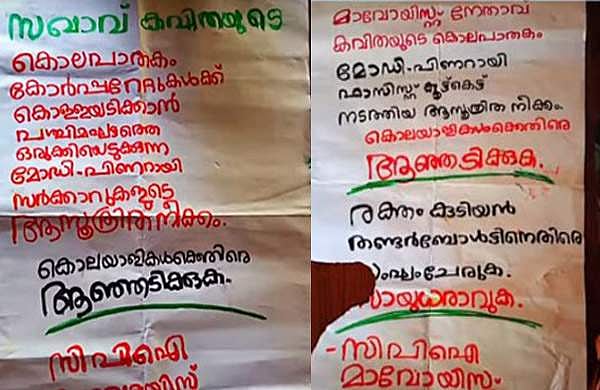 സഖാവ് കവിതയുടെ
കൊലപാതകം
കോർപ്പറേറ്റുകൾക്ക്
കൊള്ളയടിക്കാൻ
പശ്ചിമഘട്ടത്തെ
ഒരുക്കിയെടുക്കുന്ന
മോഡി-പിണറായി
സർക്കാറുകളുടെ
ആസൂത്രിത നീക്കം.
കൊലയാളികൾക്കെതിരെ
ആഞ്ഞടിക്കുക.
സിപിഐ
മാവോയിസ്റ്റ് നേതാവ്
കവിതയുടെ കൊലപാതകം
മോഡി-പിണറായി
ഫാസിസ്റ്റ് കൂട്ട്കെട്ട്
നടത്തിയ ആസൂത്രിത നീക്കം.
കൊലയാളികൾക്കെതിരെ
ആഞ്ഞടിക്കുക.
രക്തം കുടിയൻ
തണ്ടർബോൾട്ടിനെതിരെ
സംഘംചേരുക.
സായുധരാവുക.
-സിപിഐ
മാവോയിസം